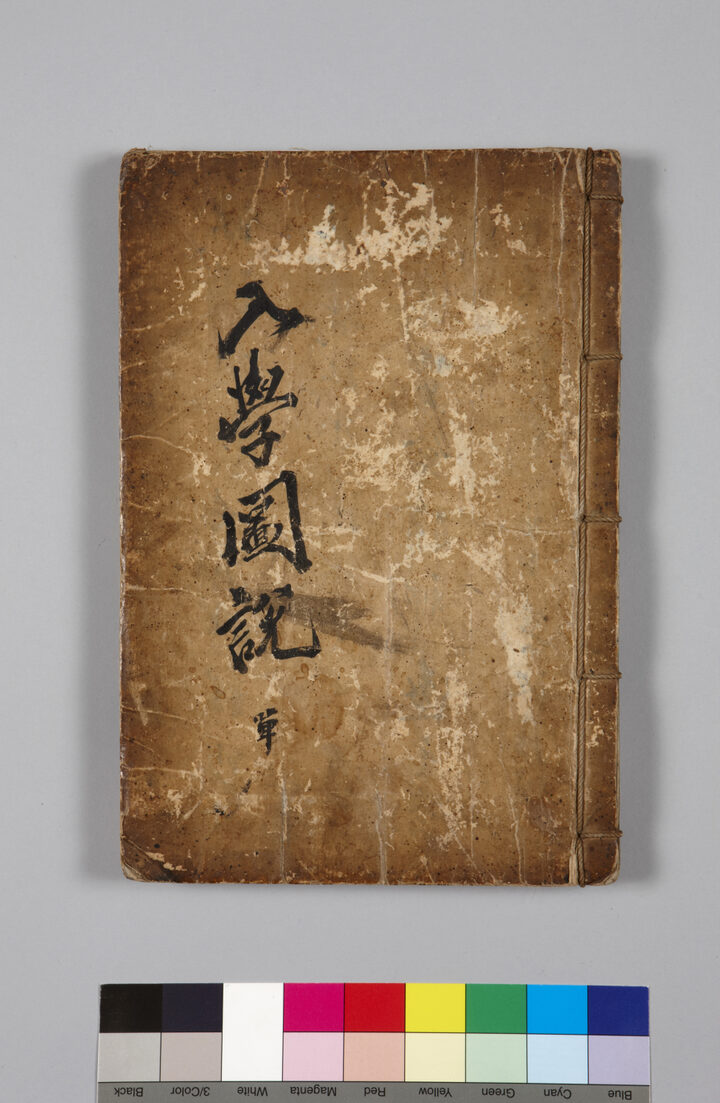 入學圖說
單
Blue Cyan Green Yellow Red Magenta White 3/Color Black